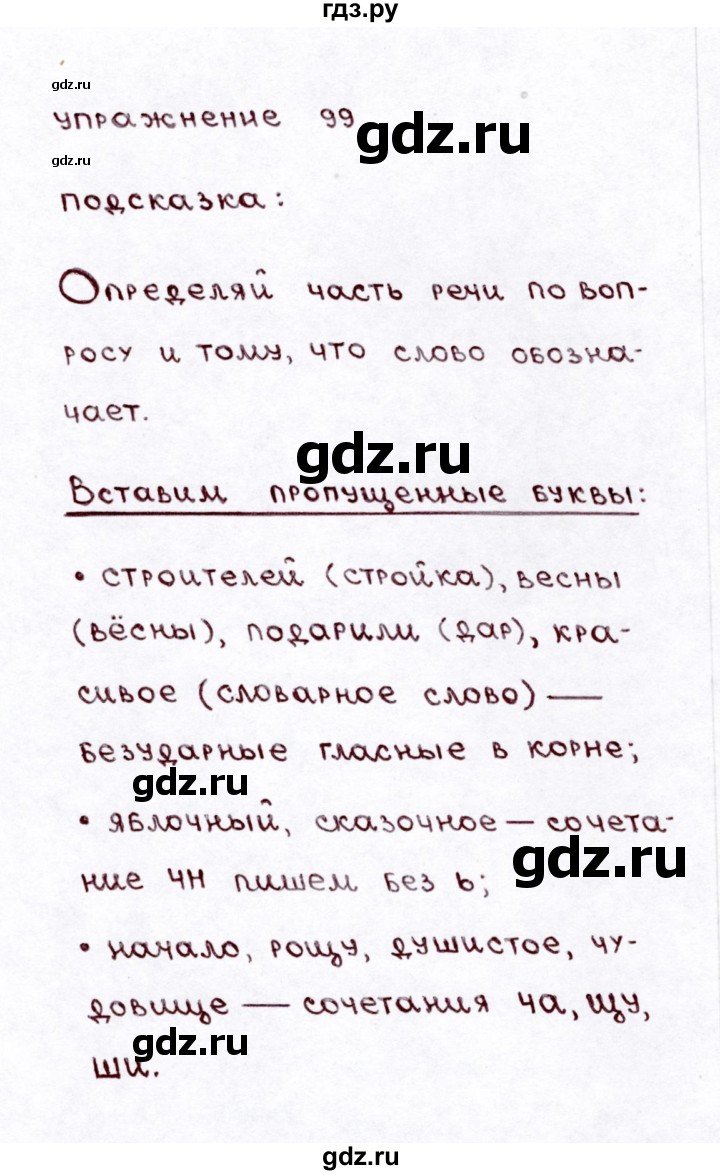 гдз.ру
gdz.ru
упражнение 99
gdz.ru
gdz.ru
подсказка:
Определяй часть речи по воп-
росу и тому, что слово обозна-
чает.
gdz.ru
Вставим пропущенные буквы:
• строителей (стройка), весны
(вёсны), подарили (дар), кра-
сивое (словарное слово) —
безударные гласные в корне;
gdz.ru
• яблочный, сказочное — сочета-
gdz.ru
ние чн пишем без ь;
• начало, рощу, душистое, чу-
довище — сочетания ча, щу,
gdz.ru
ши.
gdz.ru